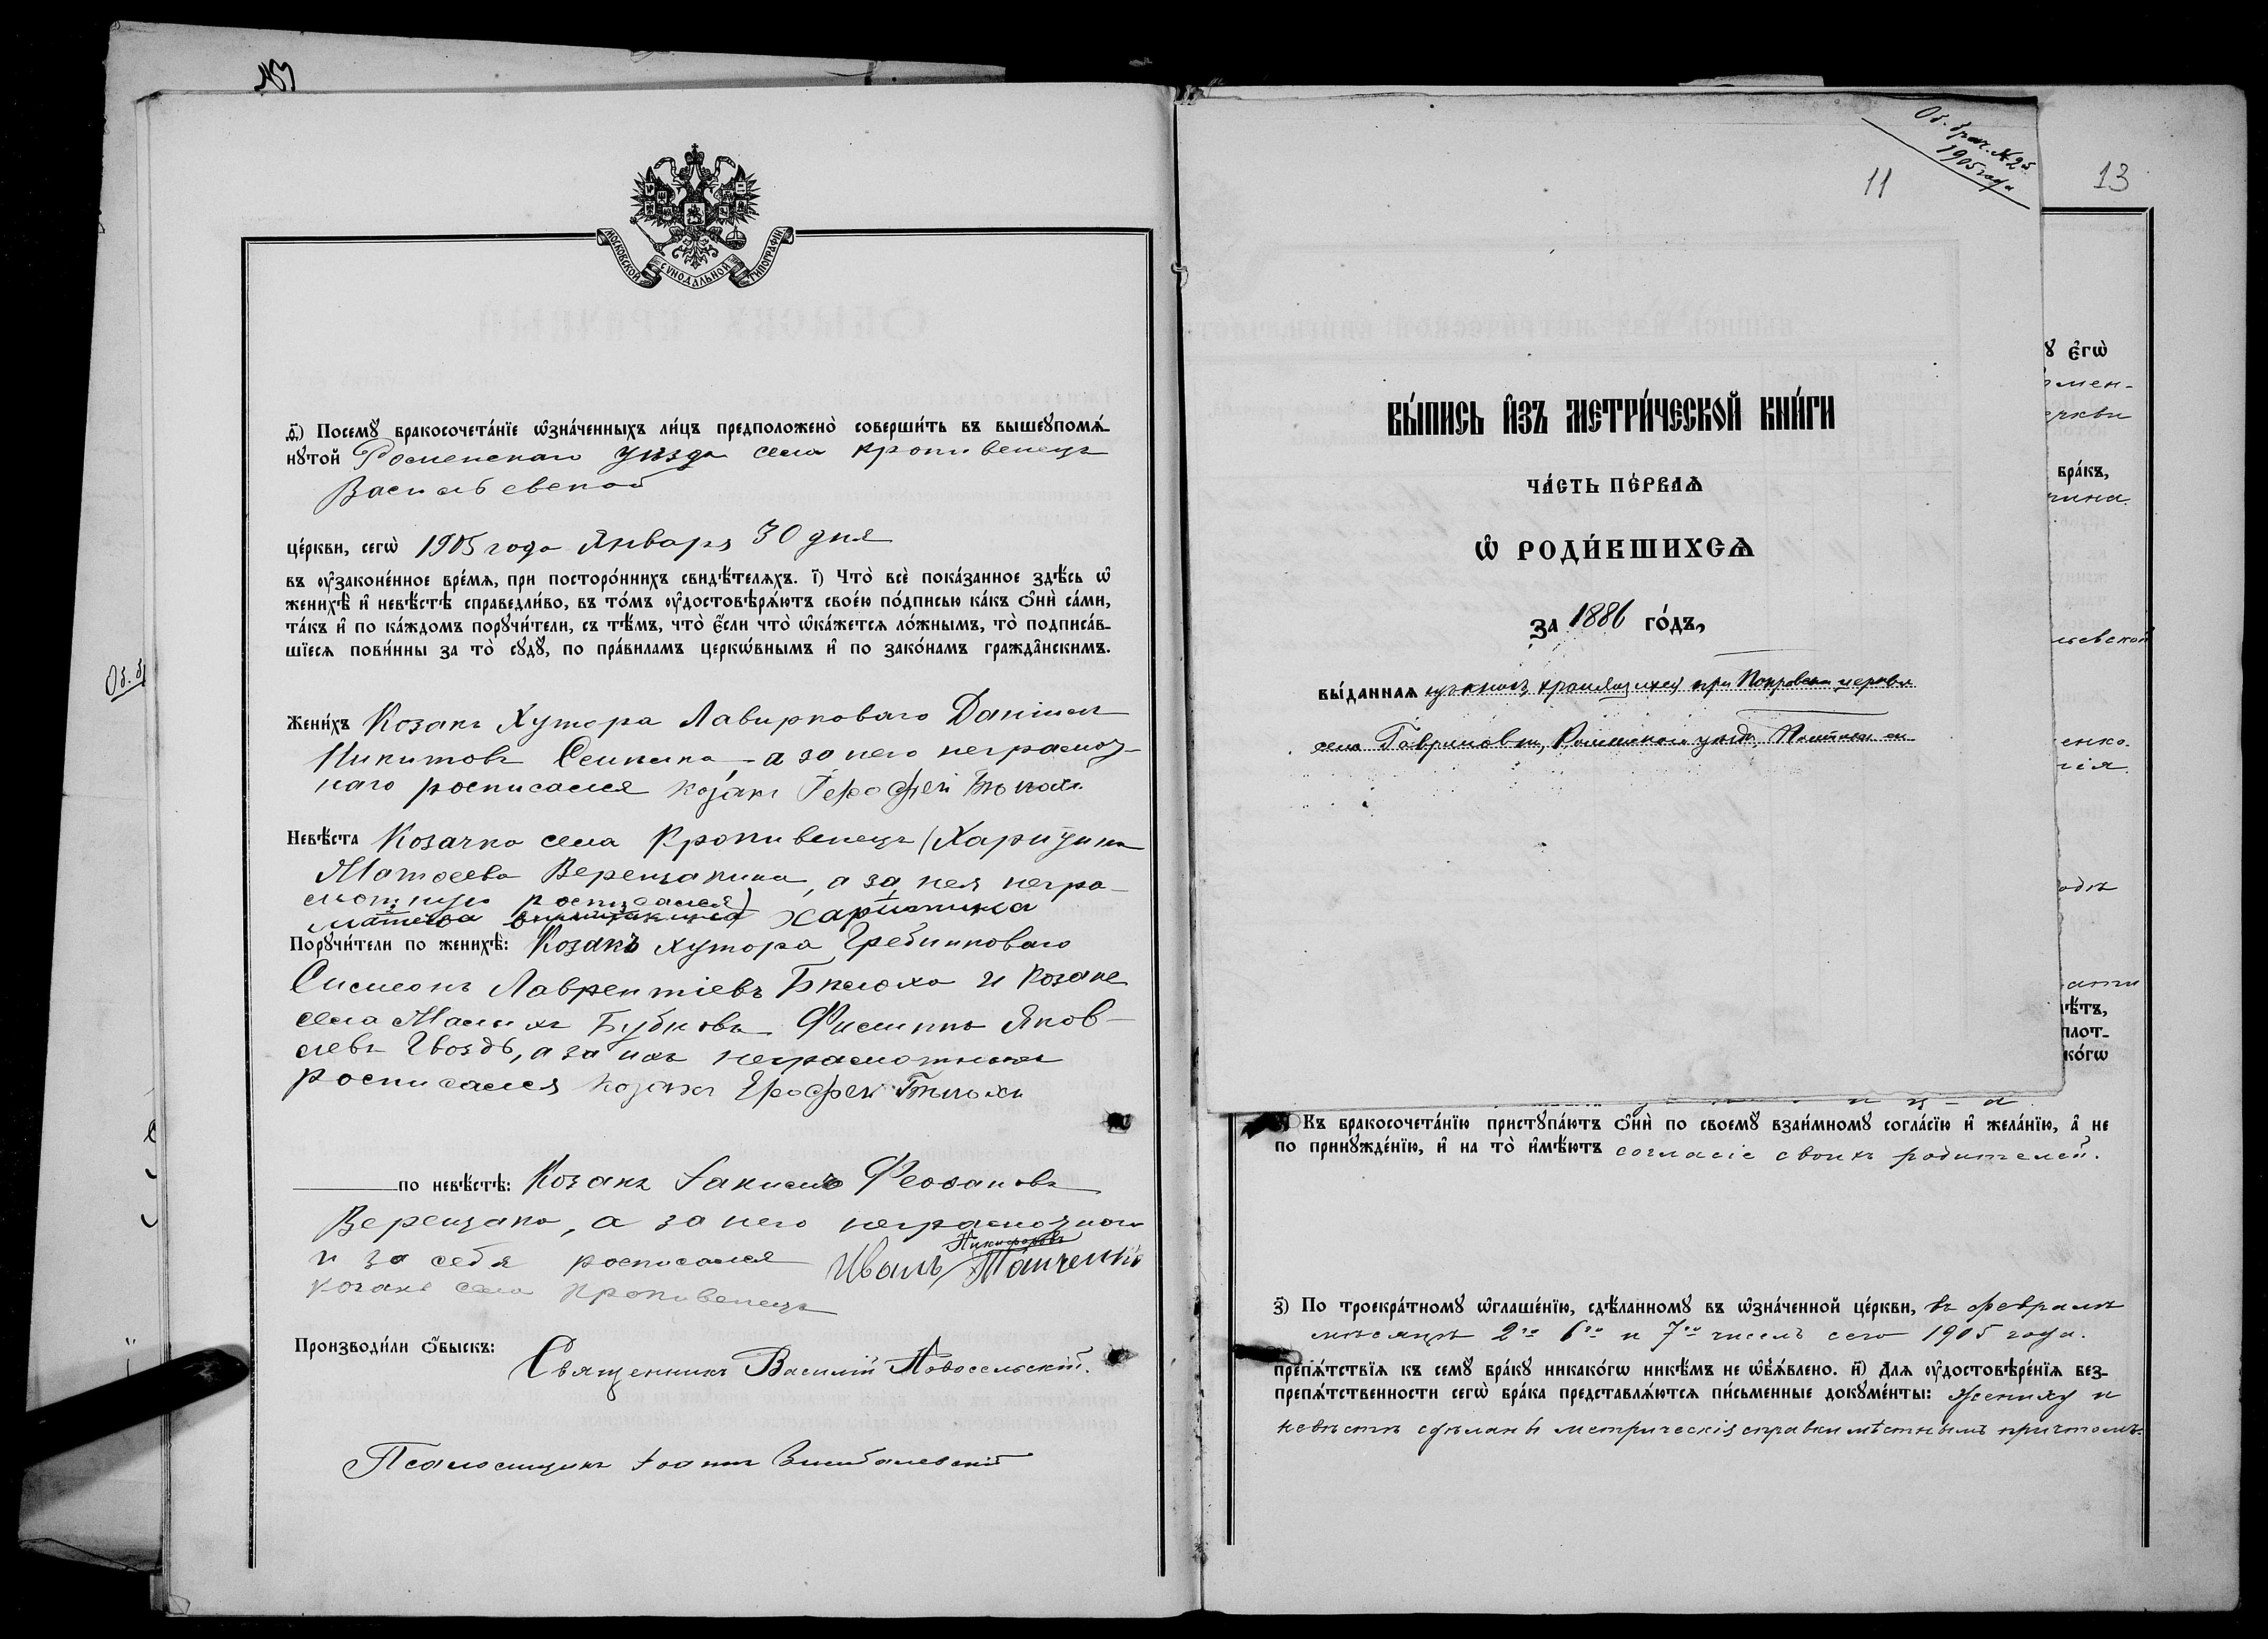 МОСКОВСКОЙ СѴНОДАЛЬНОЙ ТИПОГРАФІИ
д҃і) Посемꙋ бракосочета́нїе ѡ҆зна́ченныхъ ли́цъ предположено̀ соверши́ть въ вышеꙋпомѧ́-
нꙋтой Роменскаго уѣзда села Кропивенецъ
Васильевской
це́ркви, сегѡ̀ 1905 года Января 30 дня
въ ᲂу҆законе́нное вре́мѧ, при посторо́ннихъ свидѣ́телѧхъ. і҃) Что̀ всѐ пока́занное здѣ́сь ѡ҆
женихѣ̀ и҆ невѣ́стѣ справедли́во, въ то́мъ ᲂу҆достовѣрѧ́ютъ свое́ю по́дписью ка́къ ѻ҆нѝ са́ми,
та́къ и҆ по ка́ждомъ порꙋчи́тели, съ тѣ́мъ, что̀ є҆́сли что̀ ѡ҆ка́жется ло́жнымъ, то̀ подписа́в-
шїеся пови́нны за то̀ сꙋдꙋ̀, по пра́виламъ церкѡ́внымъ и҆ по зако́намъ гражда̂нскимъ.
Жени́хъ Козакъ Хутора Лавирковаго Даніилъ
Никитовъ, а за него неграмот-
наго росписался козакъ Герофей Бѣлоха
Невѣ́ста Козачка села Кропивенецъ (Харитина
Матѳеева Верещакина, а за нея негра-
мотную росписался)
Матѣева Харитина
Порꙋчи́тели по женихѣ̀: Козакъ хутора Гребинковаго
Симеонъ Лаврентіевъ Бѣлоха и козакъ
села Малыхъ Бубновъ Филиппъ Яков-
левъ Гвоздь, а за ихъ неграмотныхъ
росписался козакъ Ерофей Бѣлоха
по невѣ́стѣ: Козакъ Іакимъ Феофановъ
Верещака, а за него неграмотнаго
Никифоровъ
и за себя росписался Иванъ
козакъ села Кропивенецъ
Производи́ли ѻ҆́быскъ:
Священникъ Василій Новосельскій.
Псаломщикъ Іоаннъ
Об. брач. № 2й
1905 года
11
13
ВЫ́ПИСЬ И҆ЗЪ МЕТРИ́ЧЕСКОЙ КНИ́ГИ
ЧА́СТЬ ПЕ́РВАѦ
Ѡ҆ РОДИ́ВШИХСѦ
за 1886 го́дъ,
вы́данная изъ книгъ хранящихся при Покровской церкви
села Гавриловки, Роменскаго уѣзда, Полтавской
є҆гѡ̀
мен-
еркви
бра́къ,
льевской
енко
одъ
лѣ́тъ,
плот-
ко́гѡ
Къ бракосочета́нїю пристꙋпа́ютъ ѻ҆нѝ по своемꙋ̀ взаи́мномꙋ согла́сїю и҆ жела́нїю, а҆ не
по принꙋжде́нїю, и҆ на то̀ и҆мѣ́ютъ согласіе своихъ родителей.
з҃) По троекра́тномꙋ ѡ҆глаше́нїю, сдѣ́ланномꙋ въ ѡ҆зна́ченной це́ркви, въ февралѣ
мѣсяцѣ 2го 6го и 7го чиселъ сего 1905 года.
препѧ́тствїѧ къ семꙋ̀ бра́кꙋ никако́гѡ никѣ́мъ не ѡ҆б̾ѧ́влено. и҃) Длѧ ᲂу҆достовѣре́нїѧ без-
препѧ́тственности сегѡ̀ бра́ка представлѧ́ются пи́сьменные докꙋме́нты: жениху и
невѣстѣ сдѣланы метрическія справки мѣстнымъ причтомъ.